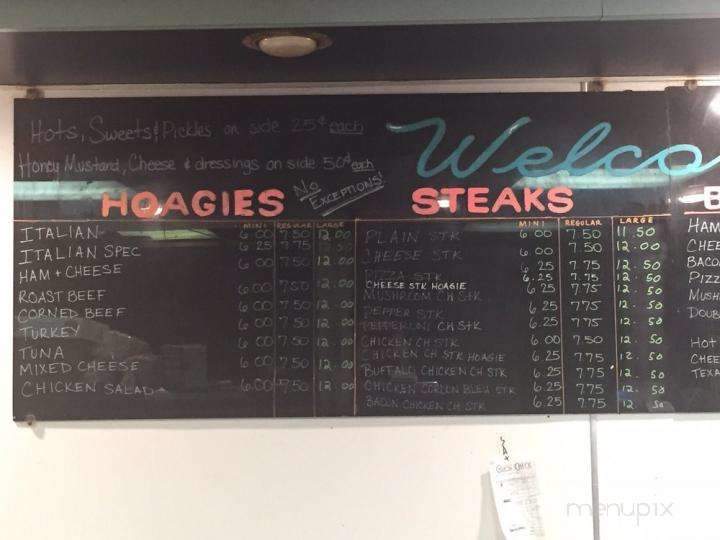 Hots, Sweets, Pickles on side 25¢ each
Honey Mustard, Cheese & dressings on side 50¢ each
No EXCEPTIONS!
Welco
HOAGIES
MINI REGULAR LARGE
ITALIAN 6.00 7.50 12.00
ITALIAN SPEC 6.25 7.75 12.00
HAM + CHEESE 6.00 7.50 12.00
ROAST BEEF 6.00 7.50 12.00
CORNED BEEF 6.00 7.50 12.00
TURKEY 6.00 7.50 12.00
TUNA 6.00 7.50 12.00
MIXED CHEESE
CHICKEN SALAD 6.00 7.50 12.00
STEAKS
MINI REGULAR LARGE
PLAIN STK 6.00 7.50 11.50
CHEESE STK 6.00 7.50 12.00
PIZZA STK 6.25 7.75 12.50
CHEESE STK HOAGIE 6.25 7.75 12.50
MUSHROOM CH STK 6.25 7.75 12.50
PEPPER STK 6.25 7.75 12.50
PEPPERONI CH STK 6.25 7.75 12.50
CHICKEN CH STK 6.00 7.50 12.50
CHICKEN CH STK HOAGIE 6.25 7.75 12.50
BUFFALO CHICKEN CH STK 6.25 7.75 12.50
CHICKEN CORDON BLEU STK 6.25 7.75 12.50
BACON CHICKEN CH STK 6.25 7.75 12.50
B
HAM
CHEE
BACO
PIZZ
MUSH
DOUB
HOT
CHEE
TEXA
menupix